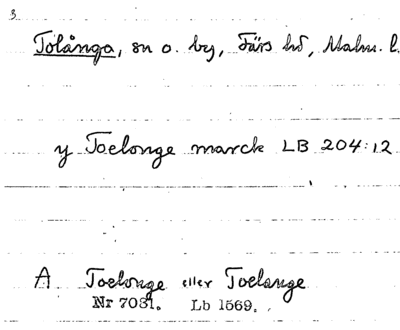 3
Tolånga, sn o. by, Färs hd, Malm. l.
y Toelonge marck LB 204:12
A Toelonge eller Toelange
Nr 7031. Lb 1569.